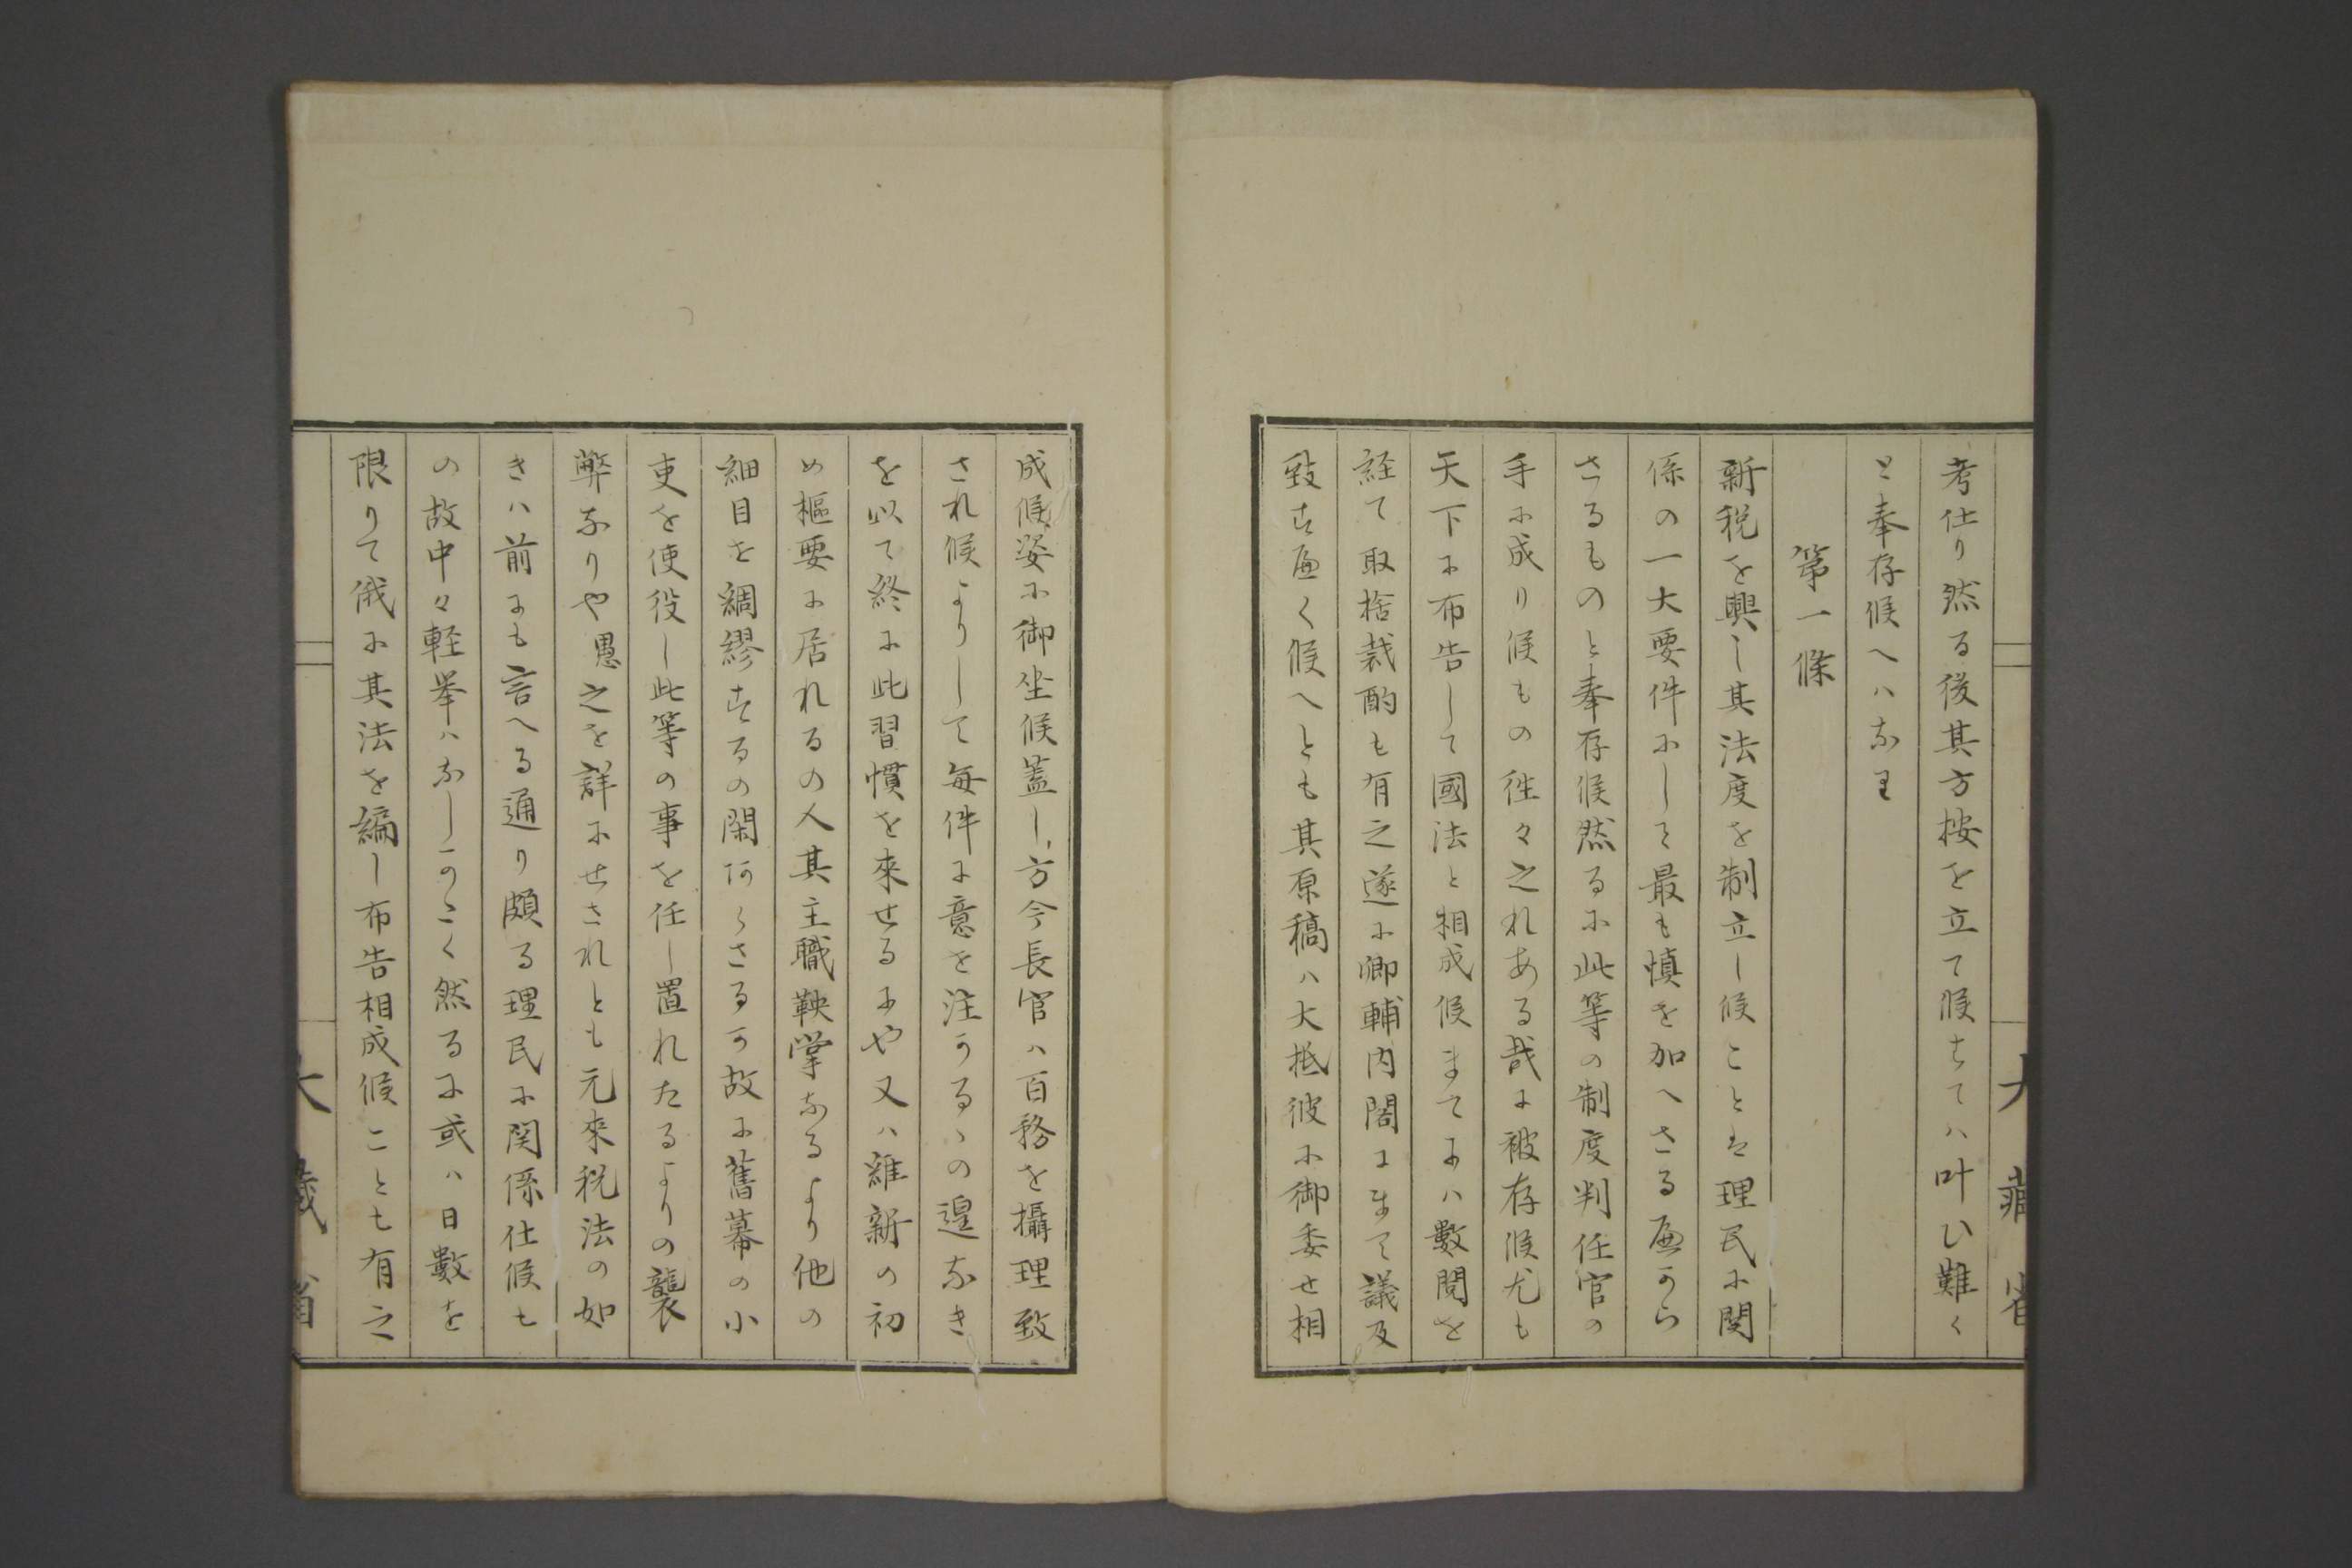 考仕り然る後其方按を立て候はては叶ひ難く
と奉存候へハなり
第一條
新税を興し其法度を制立し候ことは理民に関
係の一大要件にして最も慎を加へさる可から
さるものと奉存候然るに此等の制度判任官の
手に成り候もの徃々之れある哉に被存候尤も
天下に布告して國法と相成候まてにハ數閲を
経て取捨裁酌も有之遂に卿輔内閣にまて議及
致す可く候へとも其原稿ハ大抵彼に御委せ相
大藏省
成候姿に御坐候蓋し方今長官ハ百務を攝理致
され候よりして毎件に意を注かるゝの遑なき
を以て終に此習慣を來せるにや又ハ維新の初
め樞要に居れるの人其主職鞅掌なるより他の
細目を綢繆するの閑あらさるか故に舊幕の小
吏を使役し此等の事を任し置れたるよりの襲
弊なりや愚之を詳にせされとも元來税法の如
きハ前にも言へる通り頗る理民に関係仕候も
の故中々軽挙ハなしかたく然るに或ハ日數を
限りて俄に其法を編し布告相成候ことも有之
大藏省